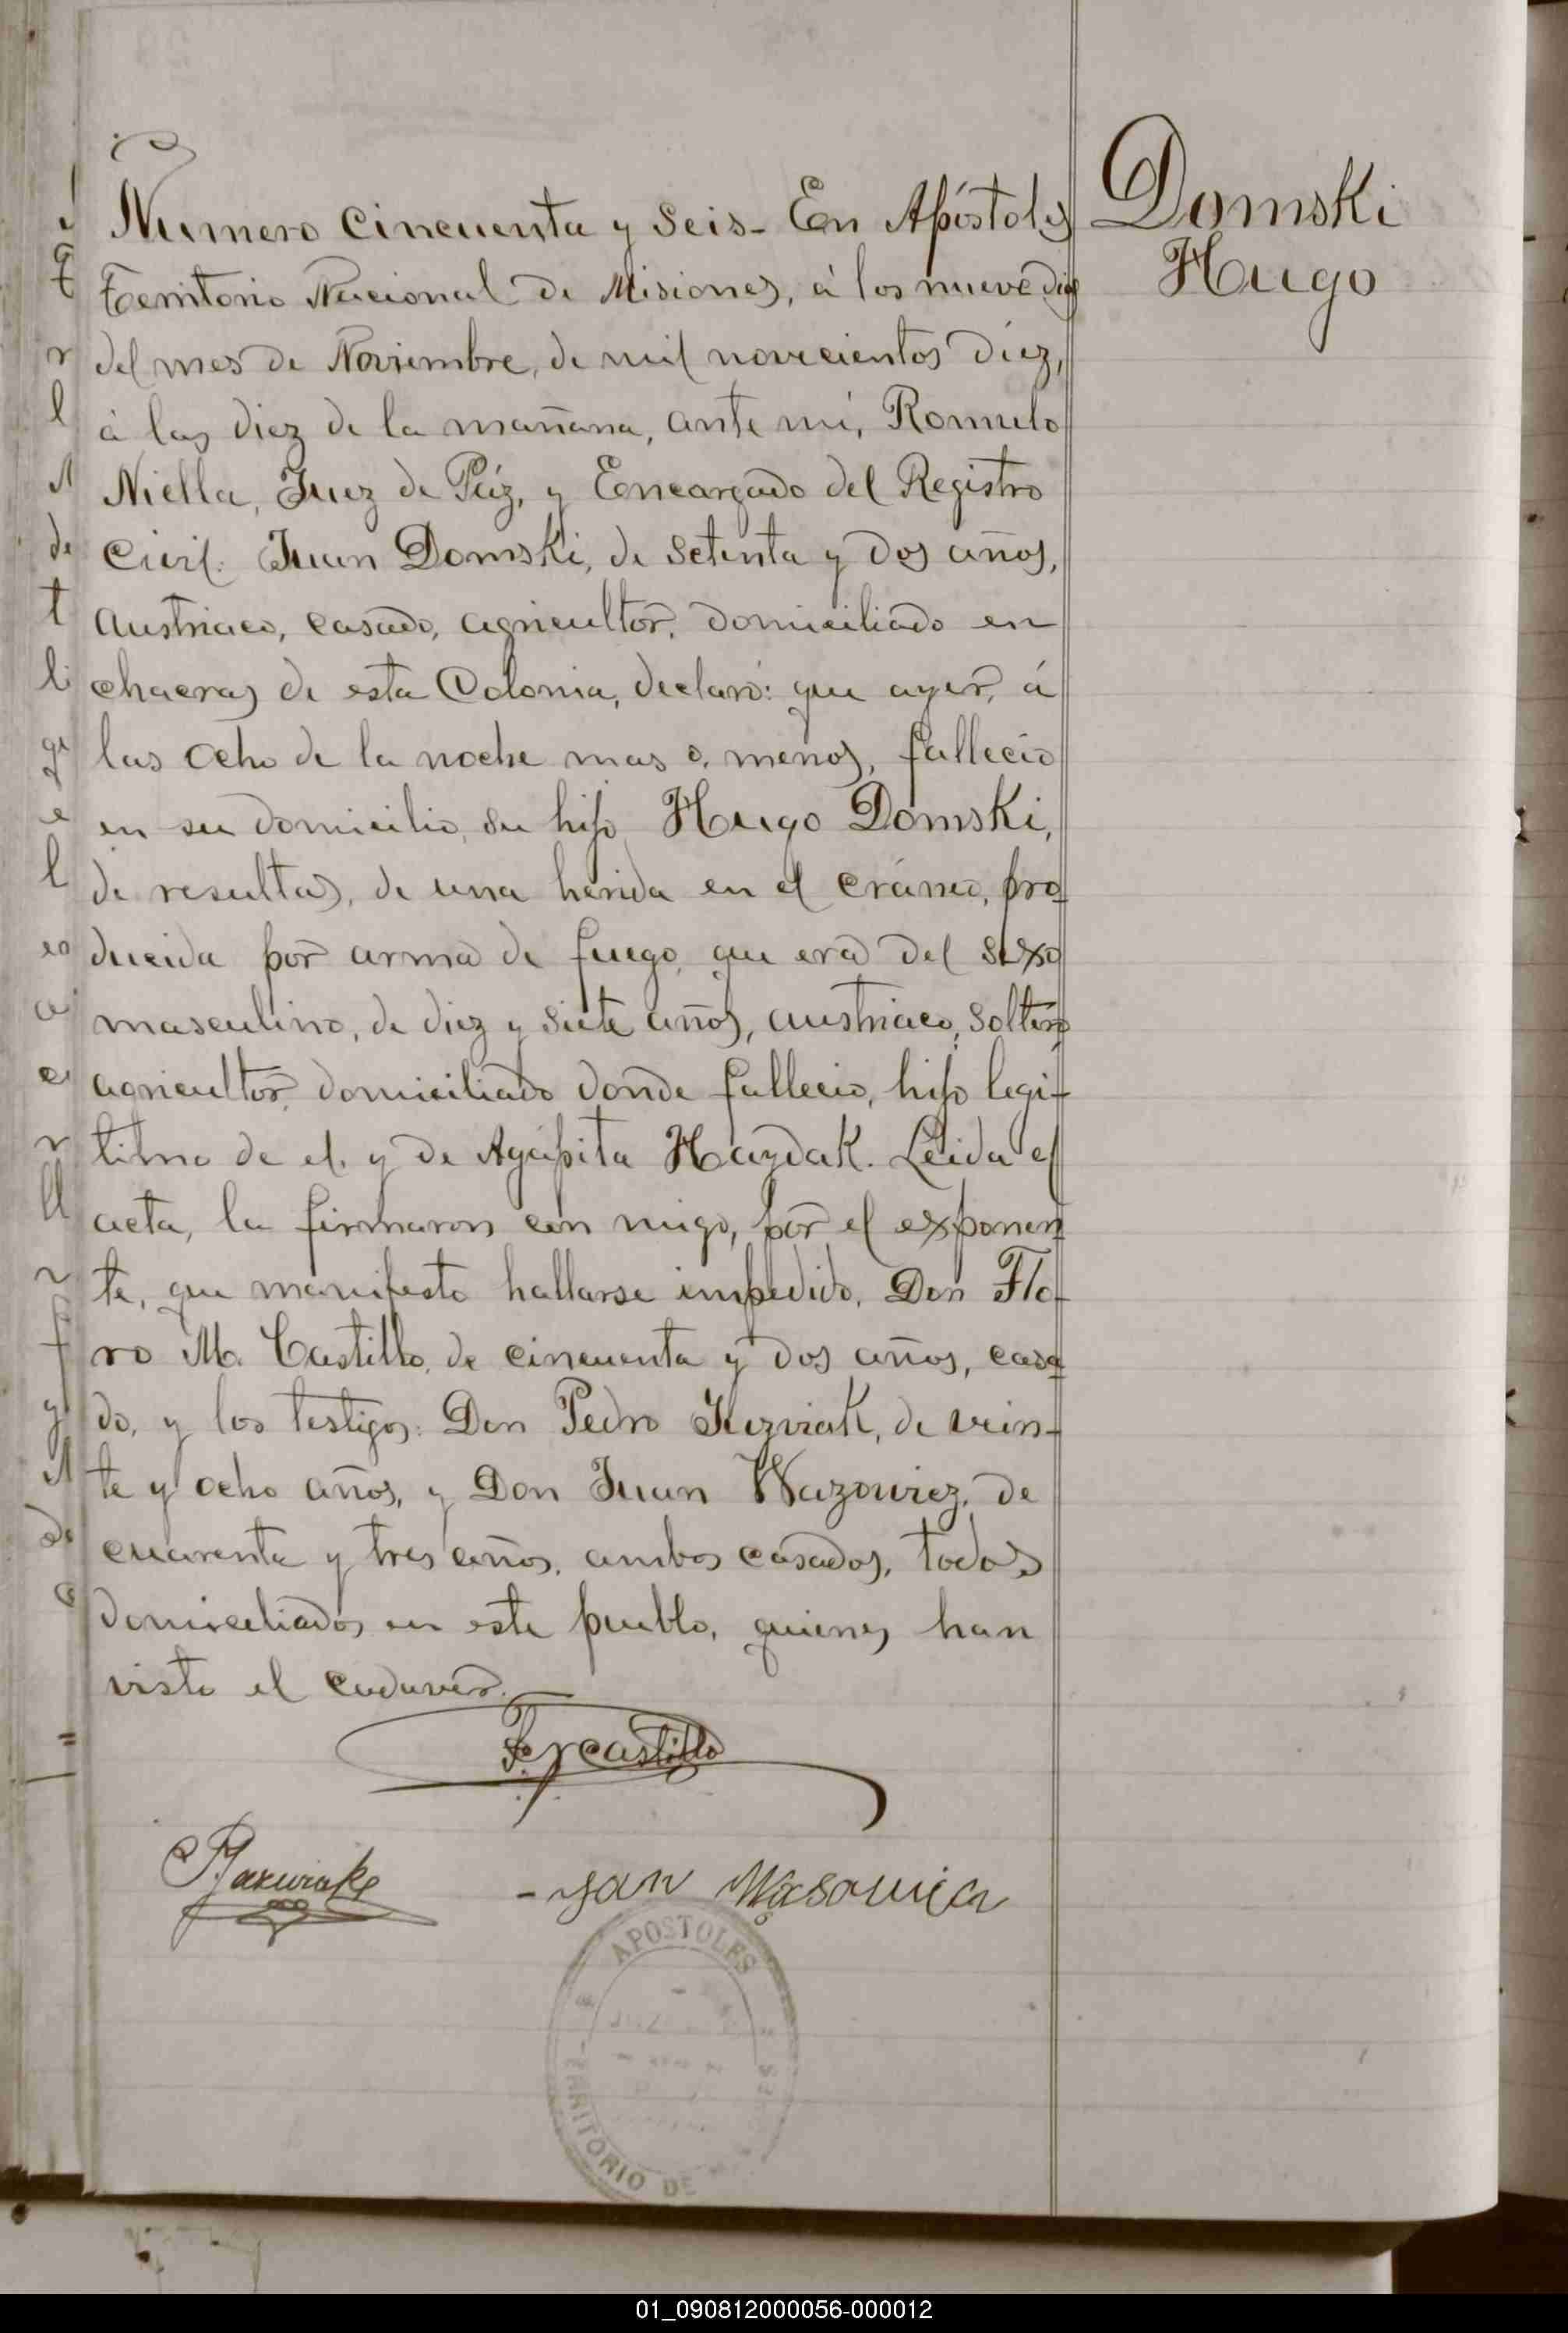 Domski
Hugo
Numero cincuenta y seis- En Apóstoles
Territorio Nacional de Misiones, á los nueve dias
del mes de Noviembre, de mil novecientos diez,
á las diez de la mañana, ante mi, Romulo
Niella, Juez de Páz, y Encargado del Registro
Civil: Juan Domski, de setenta y dos años,
austriaco, casado, agricultor, domiciliado en
chacras de esta Colonia, declaró: que ayer, á
las ocho de la noche mas o, menos, fallecio
en su domicilio, su hijo Hugo Domski,
de resultas, de una herida en el cráneo, pro-
ducida por arma de fuego, que era del sexo
masculino, de diez y siete años, austriaco, soltero
agricultor, domiciliado donde fallecio, hijo legi-
timo de el, y de Agapita Hazdak. Leida el
acta, la firmaron con migo, por el exponen-
te, que manifesto hallarse impedido, Don Flo-
ro M. Castillo, de cincuenta y dos años, casa-
do, y los testigos: Don Pedro Juzviak, de vein-
te y ocho años, y Don Juan Wazowicz, de
cuarenta y tres años, ambos casados, todos
domiciliados en este pueblo, quienes han
visto el cadaver.
Castillo
Jan Wasowicz
APOSTOLES
TERRITORIO DE
01_090812000056-000012